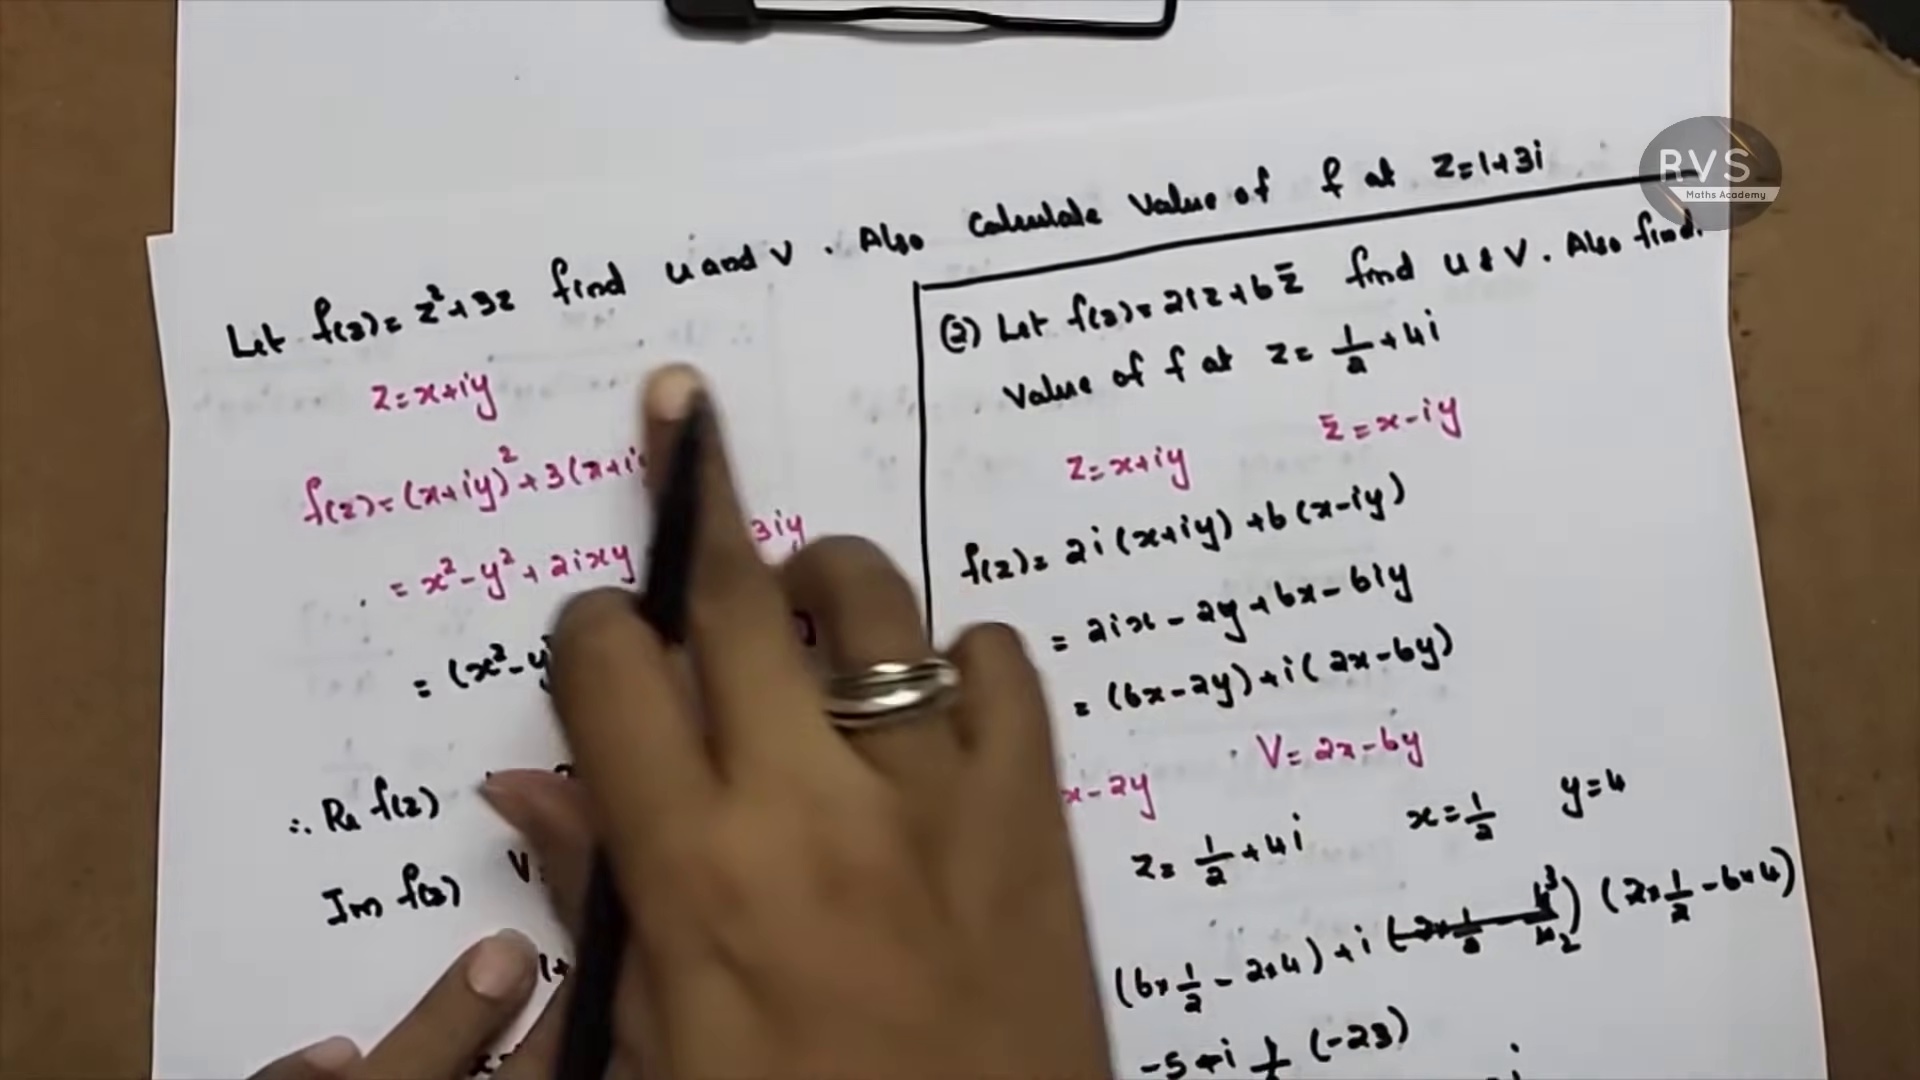 Let f(z) = z² + 3z find u and v. Also Calculate value of f at z = 1+3i
z = x+iy
f(z) = (x+iy)² + 3(x+i
= x² - y² + 2ixy 3iy
= (x² - y
∴ Re f(z)
Im f(z) V=
1+
(2) Let f(z) = 2iz + 6z̄ find u & v. Also find.
Value of f at z = 1/2 + 4i
z = x+iy z̄ = x-iy
f(z) = 2i(x+iy) + 6(x-iy)
= 2ix - 2y + 6x - 6iy
= (6x-2y) + i(2x-6y)
x-2y V = 2x-6y
z = 1/2 + 4i x = 1/2 y = 4
(6×1/2 - 2×4) + i (2×1/2 - 6×4)
-5 + i (-23)
RVS
Maths Academy